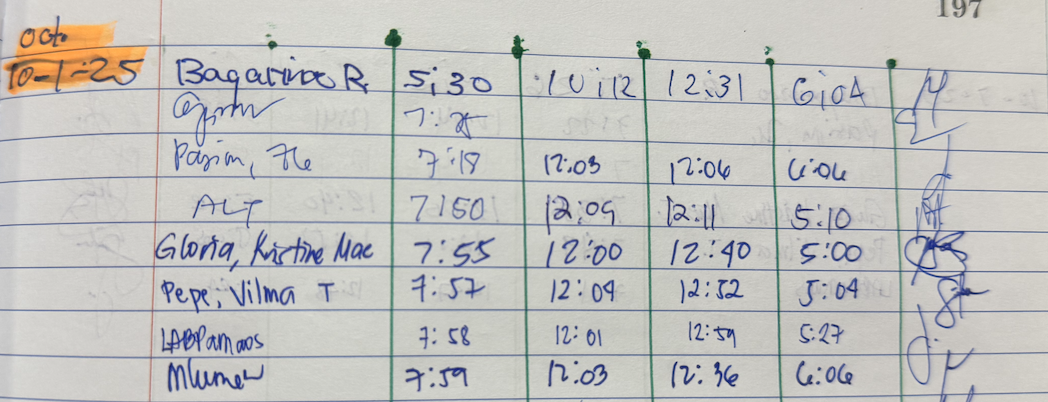 197
Oct.
10-1-25 Bagarino R. 5:30 10:12 12:31 6:04
7:25
7:18 12:03 12:06 6:06
ALT 7:50 12:09 12:11 5:10
Gloria, Kristine Mae 7:55 12:00 12:40 5:00
Pepe, Vilma T 7:57 12:04 12:52 5:04
LABPamaos 7:58 12:01 12:59 5:27
7:59 12:03 12:36 6:06